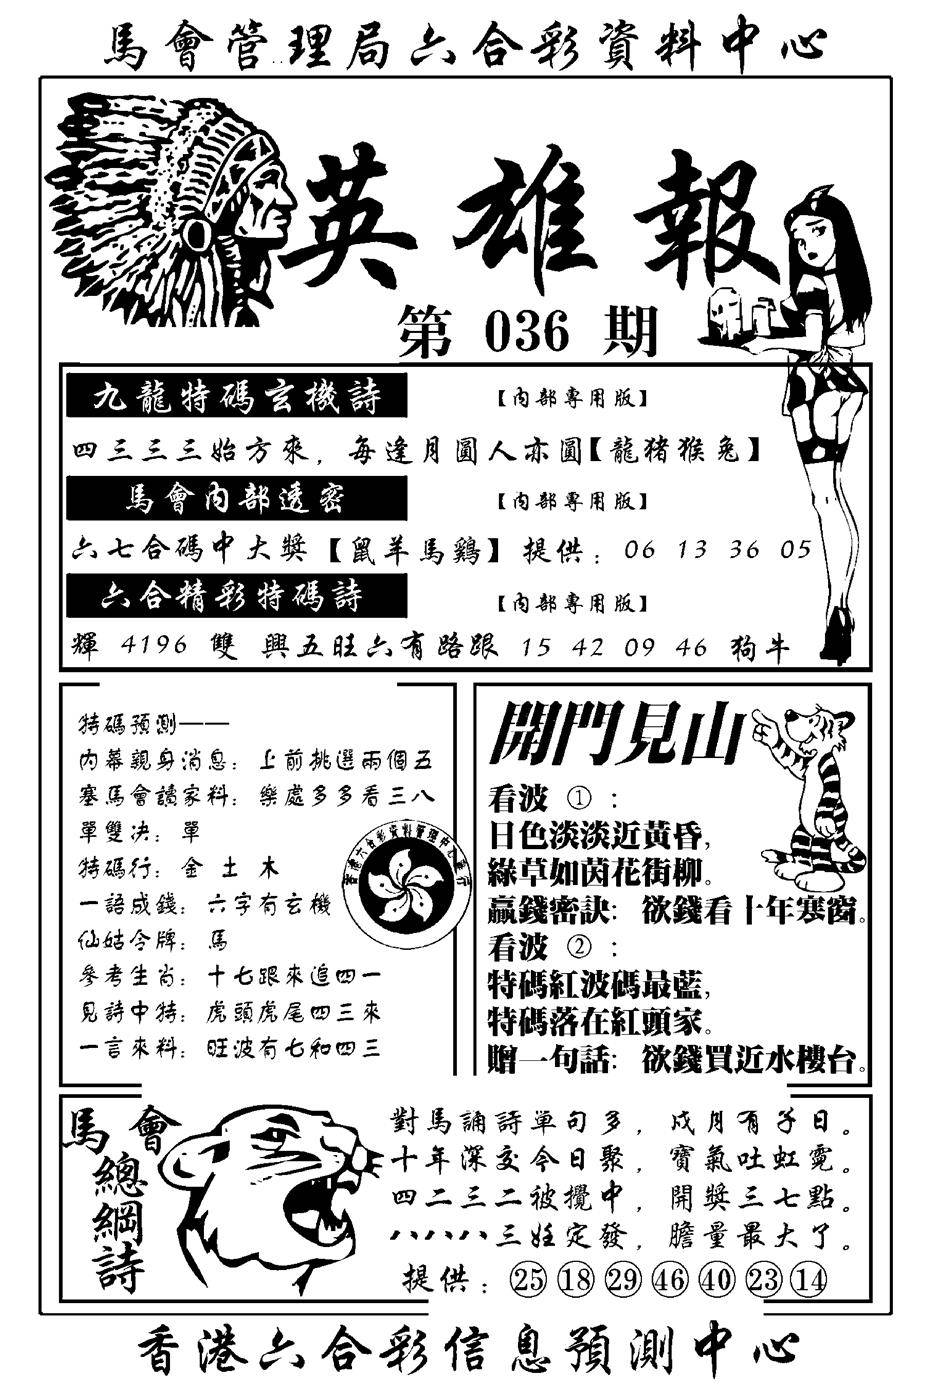 馬會管理局六合彩資料中心
英雄報
第 036 期
九龍特碼玄機詩 【內部專用版】
四三三三始方來，每逢月圓人亦圓【龍猪猴兔】
馬會內部透密 【內部專用版】
六七合碼中大獎【鼠羊馬鷄】提供：06 13 36 05
六合精彩特碼詩 【內部專用版】
輝 4196 雙 興五旺六有路跟 15 42 09 46 狗牛
特碼預測——
內幕親身消息：上前挑選兩個五
塞馬會讀家料：樂處多多看三八
單雙决：單
特碼行：金 土 木
一語成錢：六字有玄機
仙姑令牌：馬
參考生肖：十七跟來追四一
見詩中特：虎頭虎尾四三來
一言來料：旺波有七和四三
香港六合彩資料管理中心發行
開門見山
看波 ①：
日色淡淡近黃昏，
綠草如茵花街柳。
贏錢密訣：欲錢看十年寒窗。
看波 ②：
特碼紅波碼最藍，
特碼落在紅頭家。
贈一句話：欲錢買近水樓台。
馬會總綱詩
對馬誦詩單句多，戍月有子日。
十年深交今日聚，寶氣吐虹霓。
四二三二被攪中，開獎三七點。
八八八八三姓定發，膽量最大了。
提供：㉕⑱㉙㊻㊵㉓⑭
香港六合彩信息預測中心